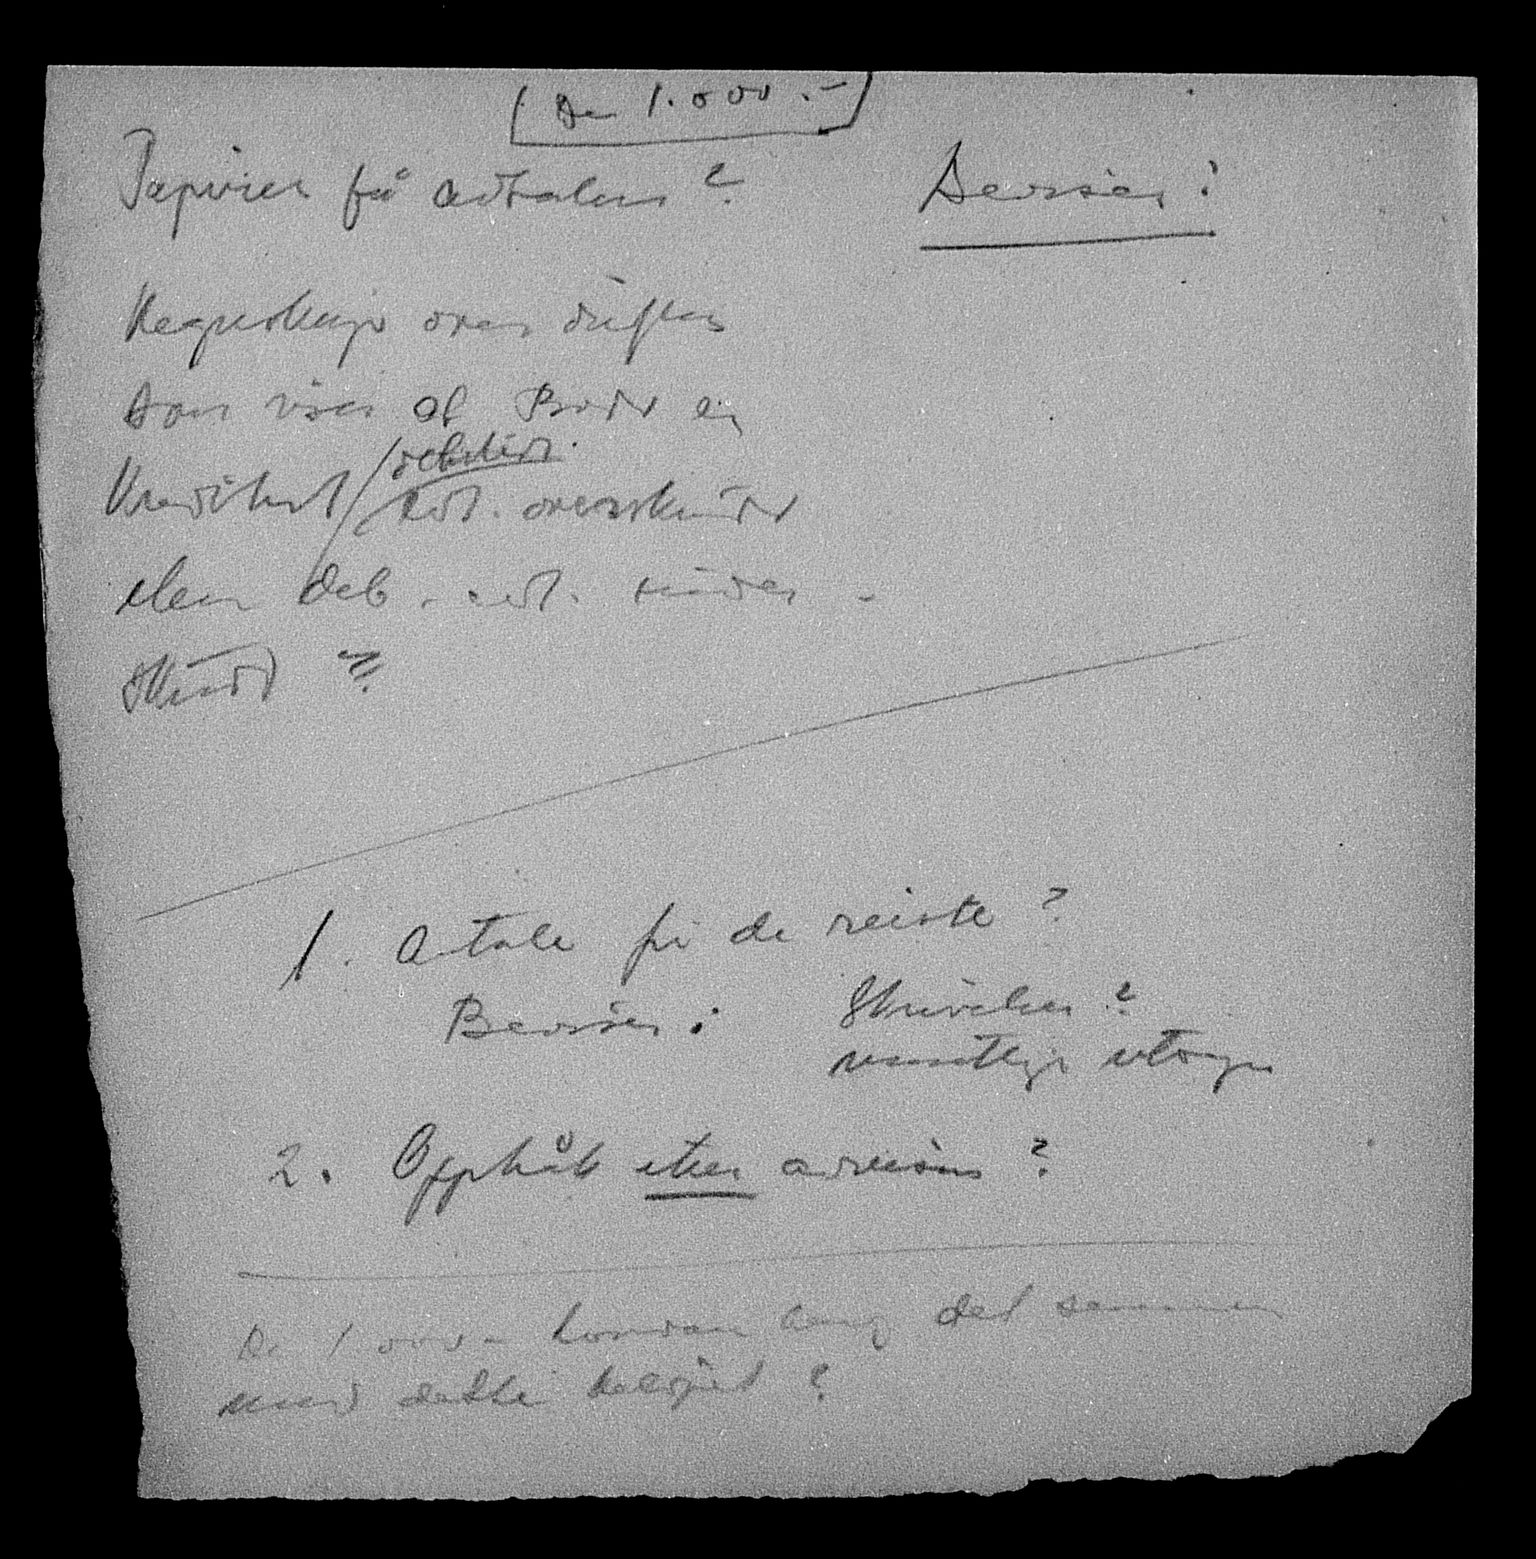 [De 1.000.-]
Papirer på avtalen? Beviser:
Regnskap over driften
som viser at Bodø er
Kreditert / debitert
evt. overskudd
eller deb. evt. under-
skudd?
1. Avtale fri de reiste?
Beviser: Skrivelser?
muntlige utsagn
2. Opphold etter avreisen?
De 1.000- hvordan heng det sammen
med dette beløpet?